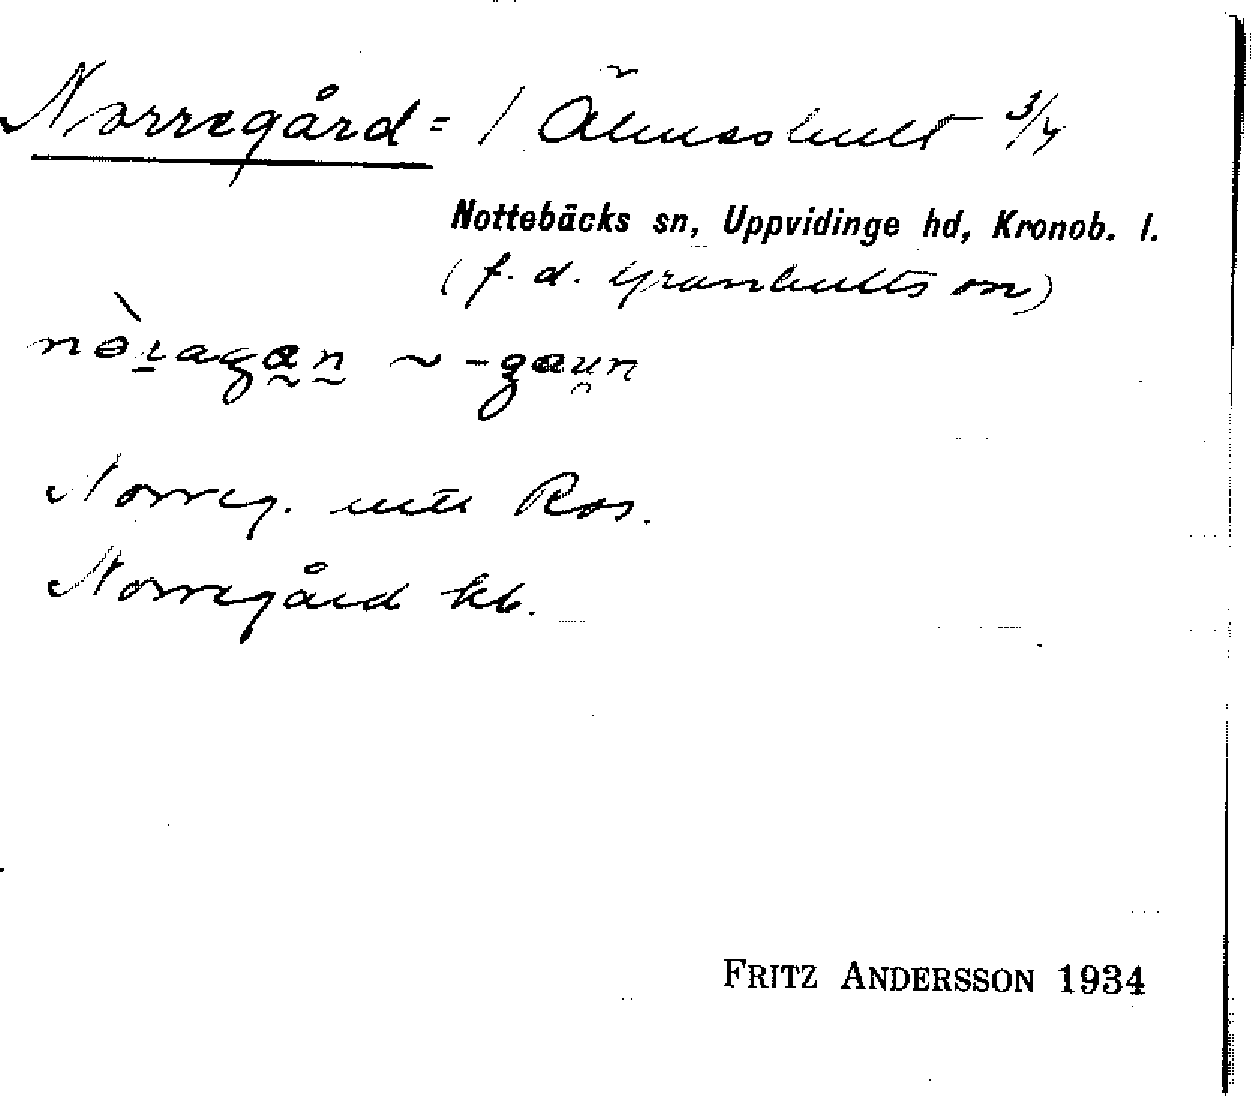 Norregård = / Älmeshult 3/4
Nottebäcks sn, Uppvidinge hd, Kronob. l.
(f. d. Granhults sn)
nòragan ~ -gaun
Norreg. Ros.
Norregård kb.
FRITZ ANDERSSON 1934